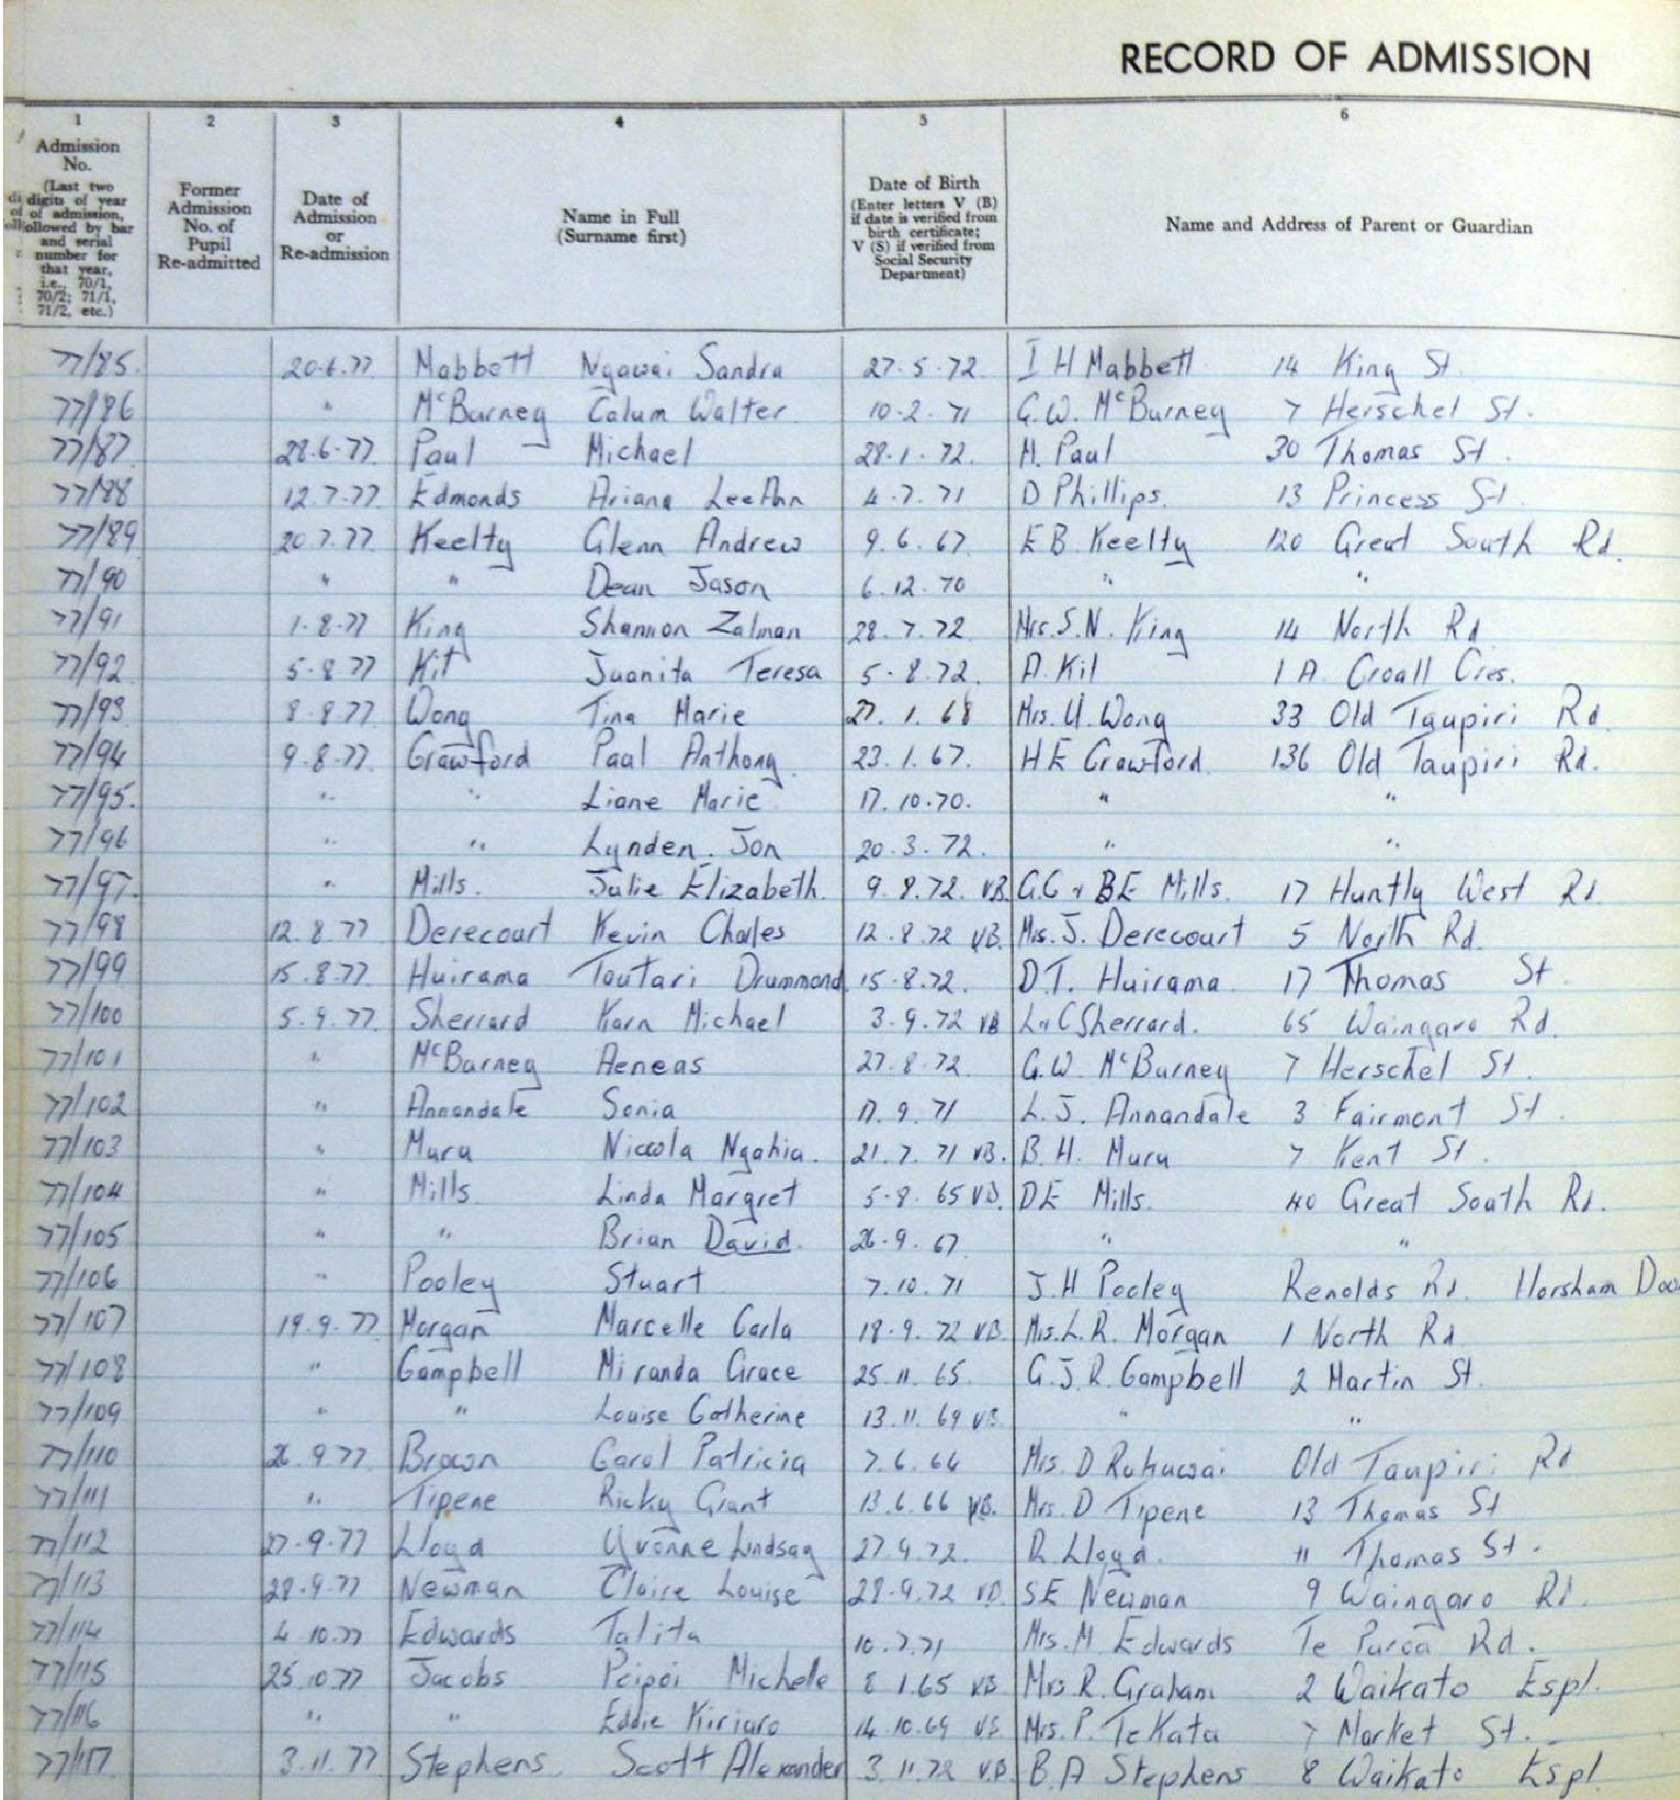 RECORD OF ADMISSION
1 2 3 4 5 6
Admission No. (Last two digits of year of admission, followed by bar and serial number for that year, i.e., 70/1, 70/2; 71/1, 71/2, etc.)
Former Admission No. of Pupil Re-admitted
Date of Admission or Re-admission
Name in Full (Surname first)
Date of Birth (Enter letters V (B) if date is verified from birth certificate; V (S) if verified from Social Security Department)
Name and Address of Parent or Guardian
77/85. 20.6.77 Mabbett Ngawai Sandra 27.5.72. I H Mabbett 14 King St.
77/86 " McBurney Calum Walter 10.2.71 G.W. McBurney 7 Herschel St.
77/87 28.6.77. Paul Michael 28.1.72. M. Paul 30 Thomas St.
77/88 12.7.77. Edmonds Ariana LeeAnn 4.7.71 D Phillips. 13 Princess St.
77/89 20.7.77. Keelty Glenn Andrew 9.6.67. E B. Keelty 120 Great South Rd.
77/90 " " Dean Jason 6.12.70 " "
77/91 1.8.77 King Shannon Zalman 28.7.72. Mrs. S.N. King 14 North Rd
77/92 5.8.77 Kit Juanita Teresa 5.8.72. A. Kit 1 A. Croall Cres.
77/93 8.8.77. Wong Tina Marie 27.1.68 Mrs. U. Wong 33 Old Taupiri Rd
77/94 9.8.77. Crawford Paul Anthony. 23.1.67. H E Crawford. 136 Old Taupiri Rd.
77/95. " " Liane Marie 17.10.70. " "
77/96 " " Lynden Jon 20.3.72. " "
77/97. " Mills. Julie Elizabeth. 9.8.72. VB. G.C & B E Mills. 17 Huntly West Rd.
77/98 12.8.77 Derecourt Kevin Charles 12.8.72 VB. Mrs. J. Derecourt 5 North Rd.
77/99 15.8.77. Huirama Toutari Drummond. 15.8.72. D.T. Huirama 17 Thomas St.
77/100 5.9.77. Sherrard Karn Michael 3.9.72 VB L & C Sherrard. 65 Waingaro Rd.
77/101 " McBurney Aeneas 27.8.72. G.W. McBurney 7 Herschel St.
77/102 " Annandale Sonia 17.9.71 L.J. Annandale 3 Fairmont St.
77/103 " Muru Niccola Ngahia. 21.7.71 VB. B.H. Muru 7 Kent St.
77/104 " Mills. Linda Margret 5.8.65 VB. D E Mills. 40 Great South Rd.
77/105 " " Brian David. 26.9.67. " "
77/106 " Pooley Stuart 7.10.71 J.H Pooley Renolds Rd. Horsham
77/107 19.9.77. Morgan Marcelle Carla 19.9.72 VB. Mrs. L.R. Morgan 1 North Rd
77/108 " Campbell Miranda Grace 25.11.65. G.J.R. Campbell 2 Martin St.
77/109 " " Louise Catherine 13.11.69 VB. " "
77/110 26.9.77. Brown Carol Patricia 7.6.64 Mrs. D Rukuwai Old Taupiri Rd
77/111 " Tipene Ricky Grant 13.6.66 VB. Mrs. D Tipene 13 Thomas St
77/112 27.9.77 Lloyd Yvonne Lindsay 27.9.72. R. Lloyd. 11 Thomas St.
77/113 28.9.77 Newman Claire Louise 28.9.72 VB. S E Newman 9 Waingaro Rd.
77/114 4.10.77 Edwards Talita 10.7.71 Mrs. M Edwards Te Puroa Rd.
77/115 25.10.77 Jacobs Peipei Michele 8.1.65 VB Mrs. R. Graham 2 Waikato Espl.
77/116 " " Eddie 14.10.69 VB Mrs. P. TeKata 7 Market St.
77/117 3.11.77 Stephens. Scott Alexander 3.11.72 V.B. B.A Stephens 8 Waikato Espl